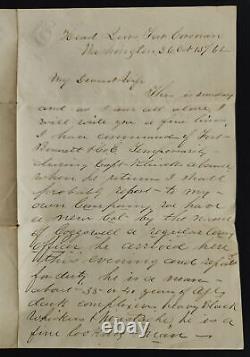 Head Qurs Fort Corcoran
Washington Oct 13th/61
My Dearest Wife
This is sunday
and as I am all alone I
will write you a few lines
I have command of Fort
Bennett & Co E Temporarily
during Capt absence
when he return I shall
probably report to my
own Company we have
a new Col by the name
of Coggswell a regular Army
officer he arrived here
this evening and reported
for duty he is a man
about 35 or 40 years of age
dark complexion heavy Black
Whiskers & mustache he is a
fine looking man